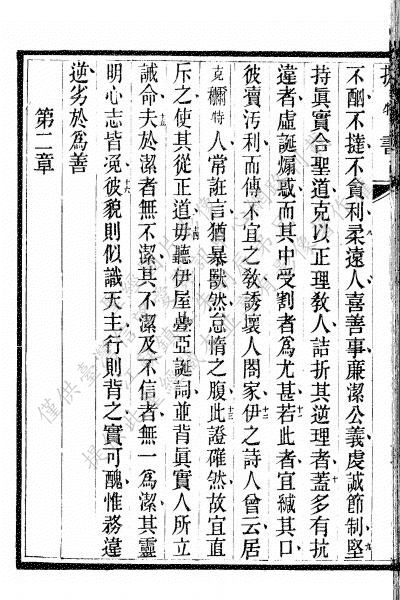 不酗不撻不貪利柔遠人喜善事㢘潔公義虔誠節制堅
持眞實合聖道克以正理教人詰折其逆理者蓋多有抗
違者虛誕煽惑而其中受割者爲尤甚若此者宜緘其口
彼賣汚利而傳不宜之教誘壞人閤家伊之詩人曾云居
克欏特人常誑言猶暴獸然怠惰之腹此證確然故宜直
斥之使其從正道毋聽伊屋疊亞誕詞並背眞實人所立
誡命夫於潔者無不潔其不潔及不信者無一爲潔其靈
明心志皆凂彼貌則似識天主行則背之實可醜惟務違
逆劣於爲善
第二章